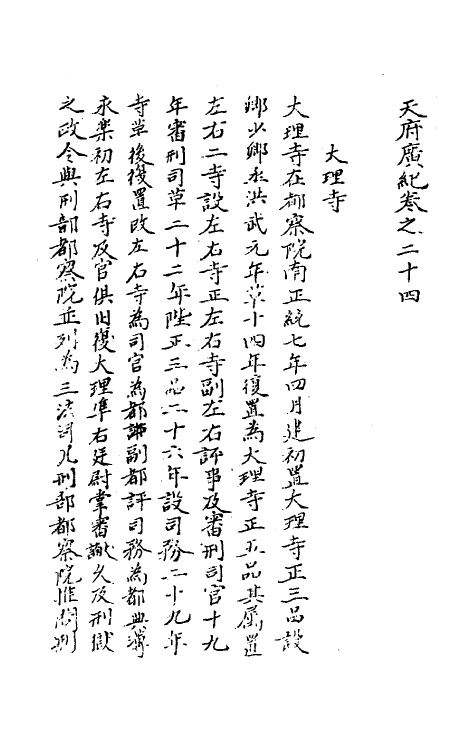 天府廣紀卷之二十四
大理寺
大理寺在都察院南正統七年四月建初置大理寺正三品設
卿少卿丞洪武元年革十四年復置為大理寺正五品其屬置
左右二寺設左右寺正左右寺副左右評事及審刑司官十九
年審刑司革二十二年陞正三品二十六年設司務二十九年
寺革後復置改左右寺為司官為都評副都評司務為都典簿
永樂初左右寺及官俱旧復大理準右廷尉掌審讞久及刑獄
之政令與刑部都察院並列為三法司凡刑部都察院推問